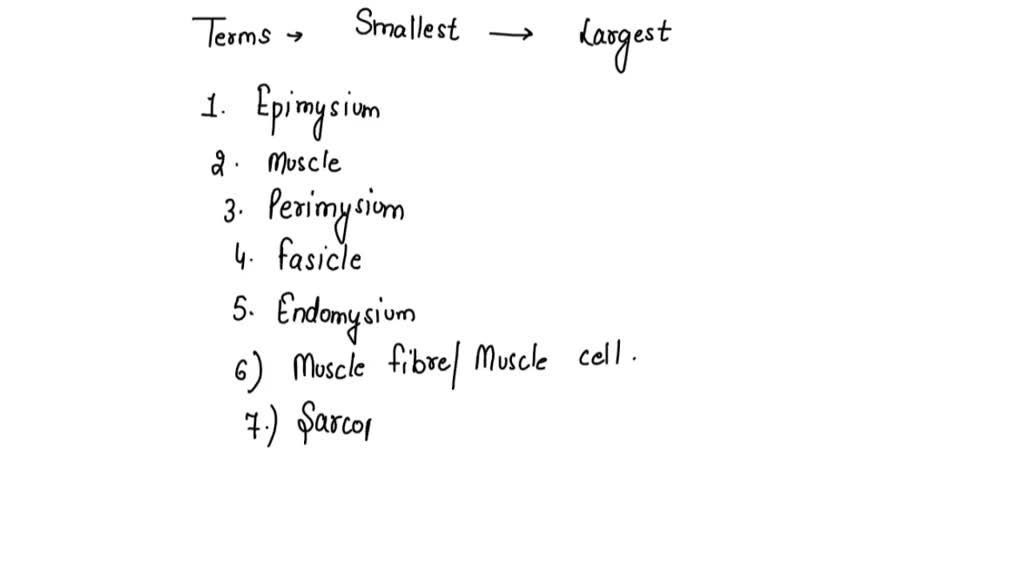 Terms → Smallest → Largest
1. Epimysium
2. Muscle
3. Perimysium
4. Fasicle
5. Endomysium
6) Muscle fibre/ Muscle cell.
7.) Sarco